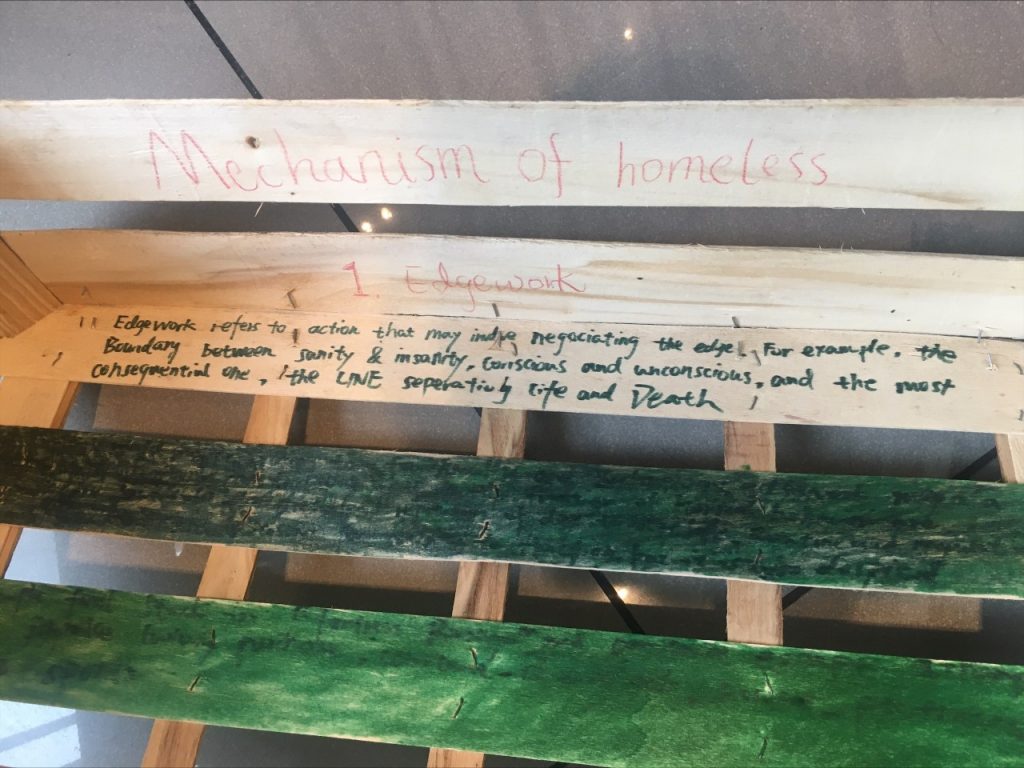 Mechanism of homeless
1. Edgework
Edgework refers to action that may negociating the edge, For example, the
Boundary between sanity & insanity, conscious and unconscious, and the most
consequential one, the LINE seperativg life and Death